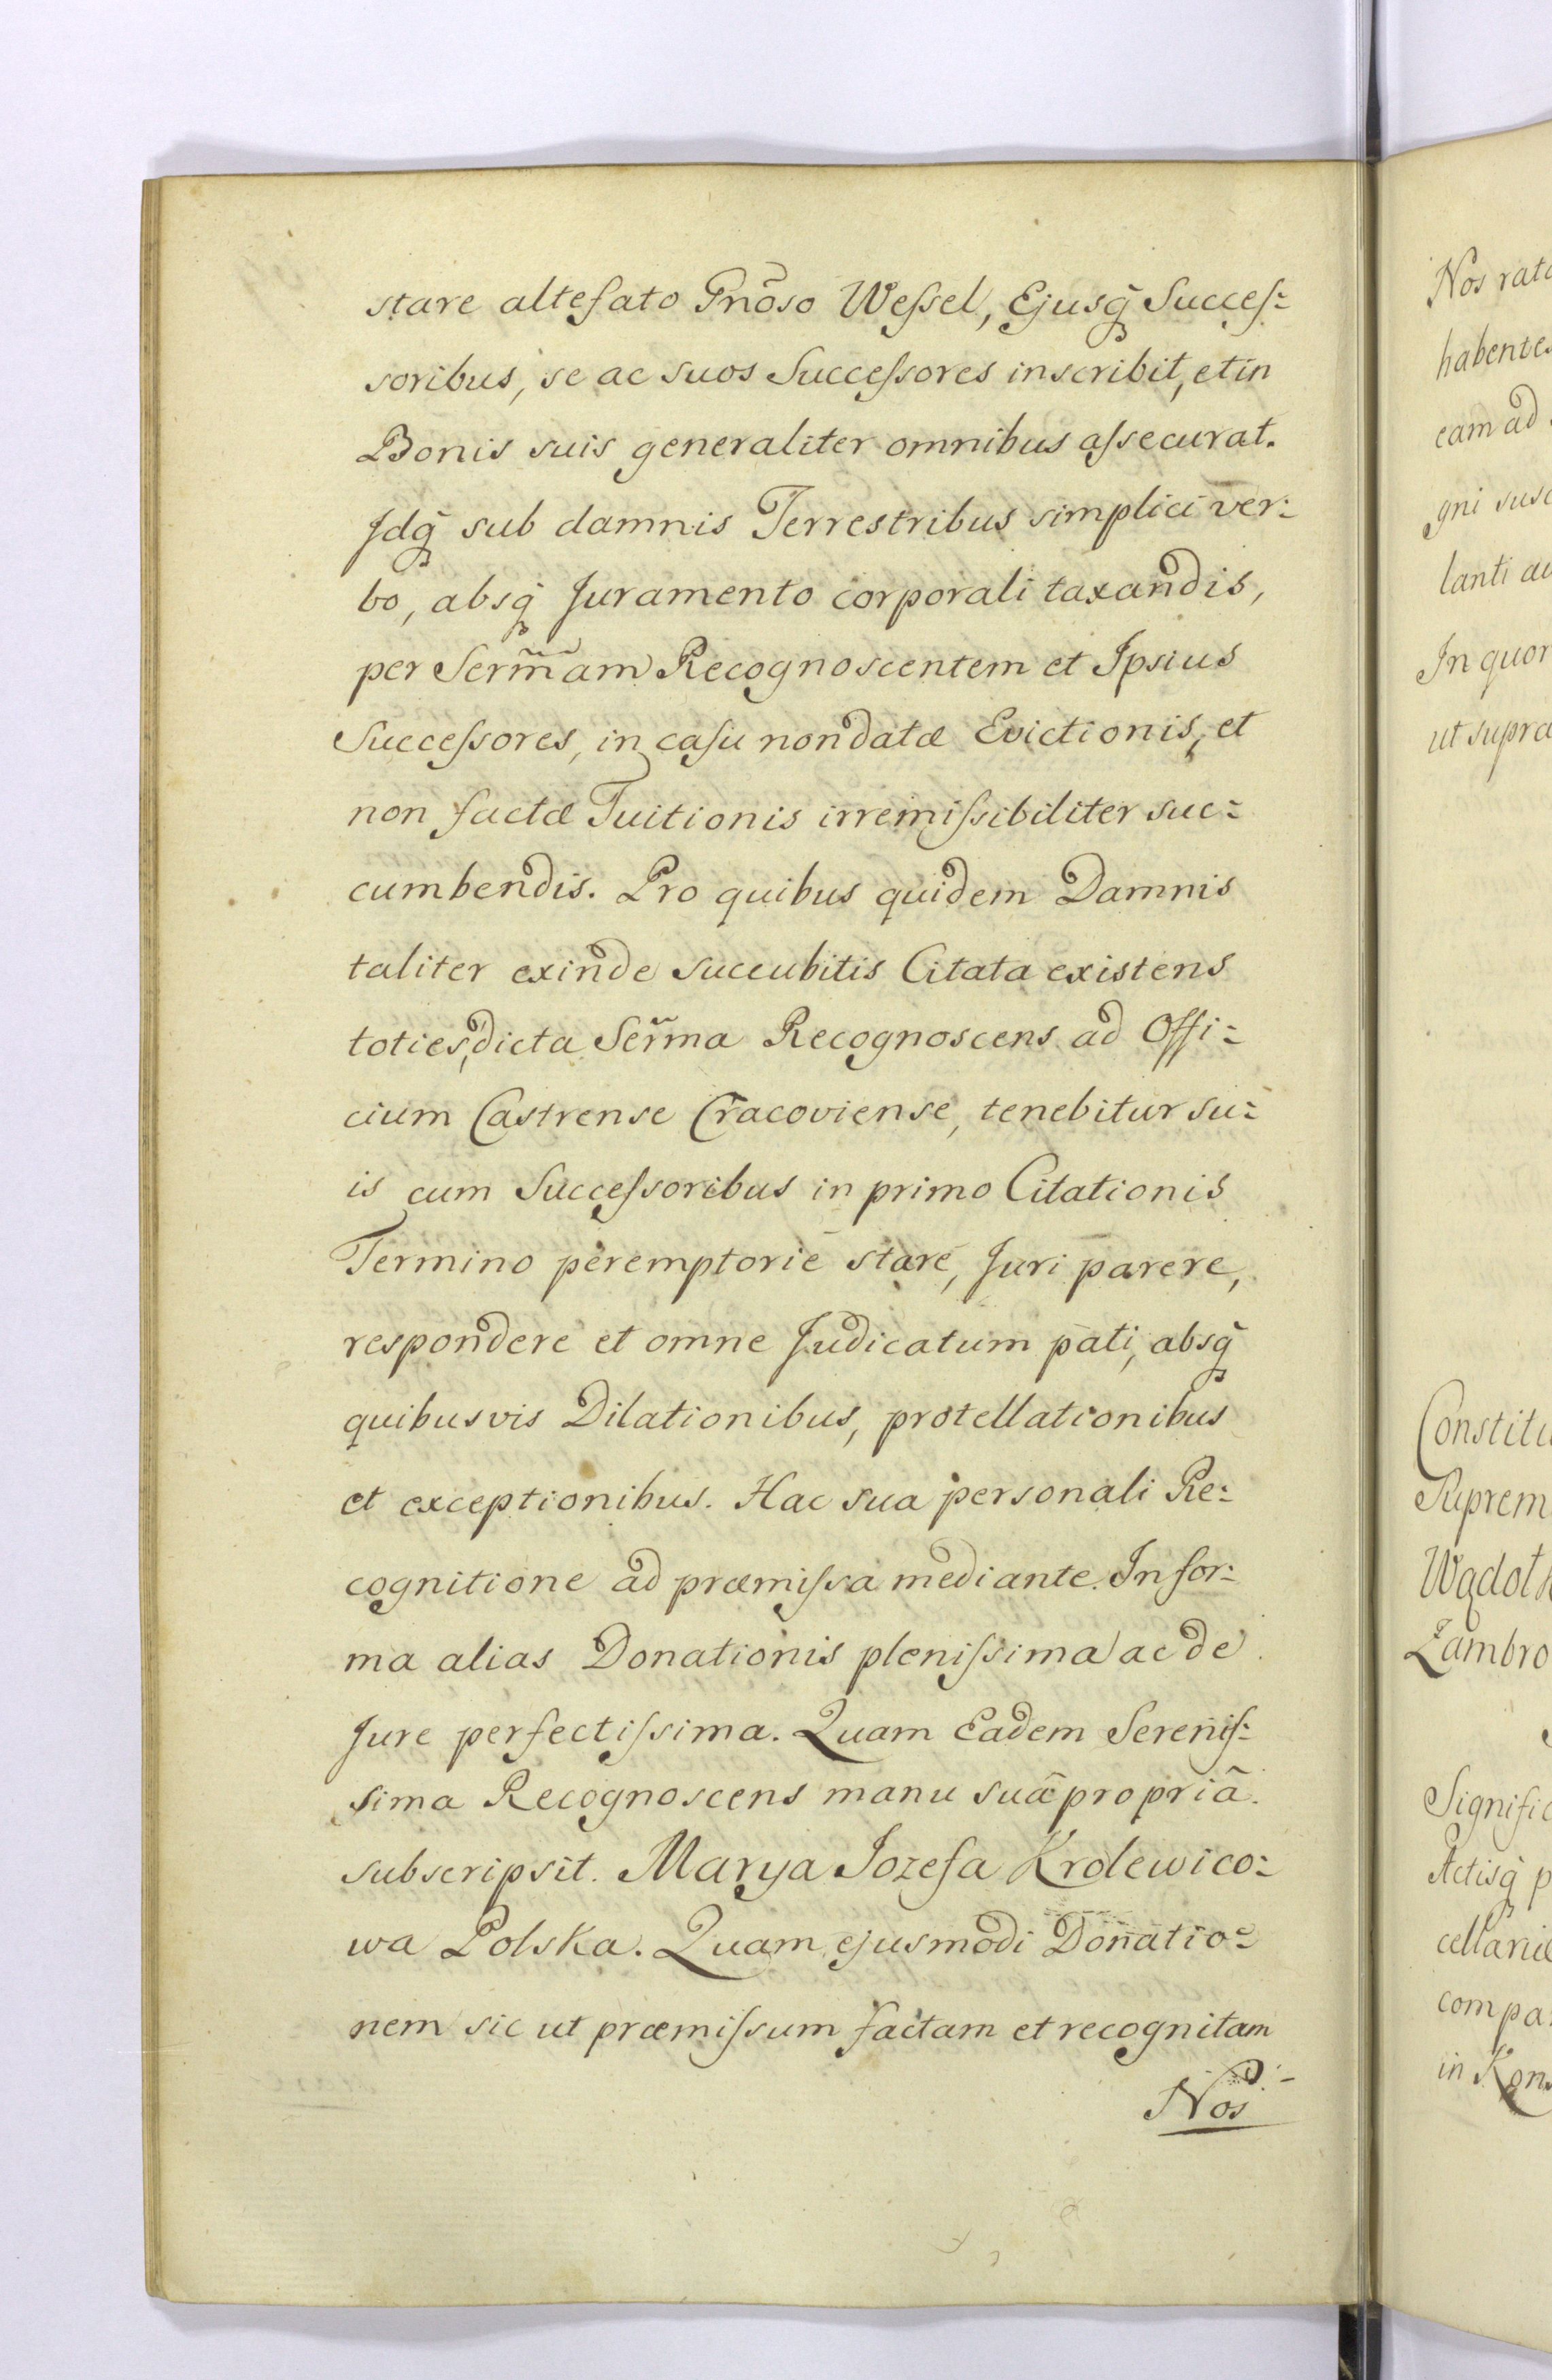 stare altefato Gnõso Weſsel, Ejusq̃ Succeſ:
soribus, se ac suos Succeſsores inscribit, et in
Bonis suis generaliter omnibus aſsecurat.
Jdq̃ sub damnis Terrestribus simplici ver:
bo, absq̃ Juramento corporali taxandis,
per Serm̃am Recognoscentem et Ipsius
Succeſsores, in casu non datæ Evictionis, et
non factæ Tuitionis irremiſsibiliter suc:
cumbendis. Pro quibus quidem Damnis
taliter exinde succubitis Citata existens
toties, dicta Ser̃ma Recognoscens ad Offi:
cium Castrense Cracoviense, tenebitur su:
is cum Succeſsoribus in primo Citationis
Termino peremptorie stare, Juri parere,
respondere et omne Judicatum pati, absq̃
quibusvis Dilationibus, protellationibus
et exceptionibus. Hac sua personali Re:
cognitione ad præmiſsa mediante. In for:
ma alias Donationis pleniſsima ac de
Jure perfectiſsima. Quam Eadem Sereniſ:
sima Recognoscens manu suâ propriâ.
subscripsit. Marya Jozefa Krolewico:
wa Polska. Quam ejusmodi Donatio:
nem sic ut præmiſsum factam et recognitam
Nos
Nos rata
habentes
eam ad
gni susc
lanti au
In quor
ut supra
Constitu
Suprem
Zambro
Signific
Actisq̃ p
cellariæ
compa
in Kon